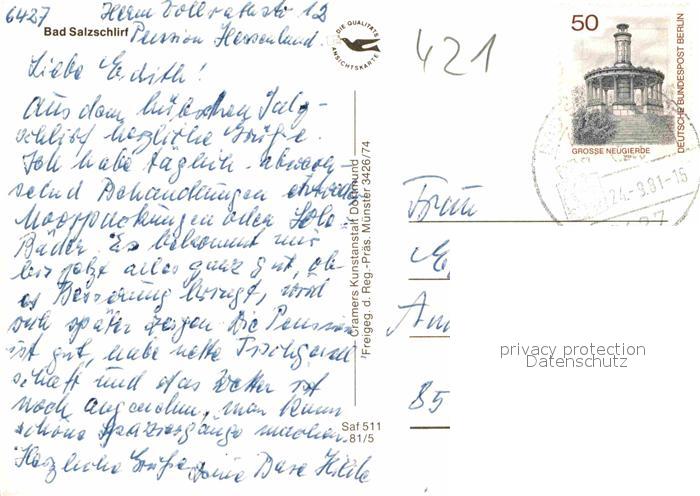 6427 Herrn Vollrathstr 12
Bad Salzschlirf Pension Hessenland.
Liebe Edith!
Aus dem hübschen Salz-
schlirf herzliche Grüße.
Ich habe täglich abwech-
selnd Behandlungen entweder
Moorpackungen oder Sole-
Bäder. Es bekommt mir
bis jetzt alles ganz gut, ob
es Besserung bringt, wird
sich später zeigen. Die Pension
ist gut, habe nette Tischgesell-
schaft und das Wetter ist
noch angenehm, man kann
schöne Spaziergänge machen.
Herzliche Grüße Deine Base Hilde
DIE QUALITÄTS
ANSICHTSKARTE
421
50
GROSSE NEUGIERDE
DEUTSCHE BUNDESPOST BERLIN
24.-9.81-15
6427
Cramers Kunstanstalt Dortmund
Freigeg. d. Reg.-Präs. Münster 3426/74
Saf 511
81/5
Frau
Am
85
privacy protection
Datenschutz